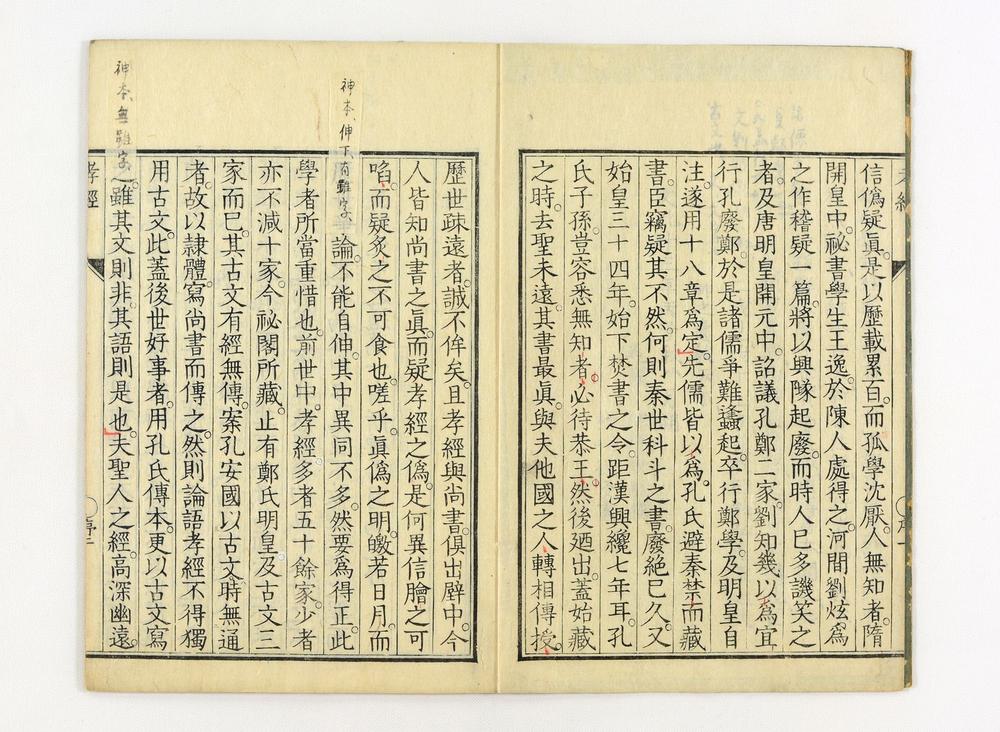 信僞疑眞。是以歷載累百。而孤學沈厭。人無知者。隋
開皇中。祕書學生王逸。於陳人處得之。河間劉炫爲
之作稽疑一篇。將以興隊起廢。而時人已多譏笑之
者。及唐明皇開元中。詔議孔鄭二家。劉知幾以爲宜
行孔廢鄭。於是諸儒爭難蠭起。卒行鄭學。及明皇自
注。遂用十八章爲定。先儒皆以爲孔氏避秦禁而藏
書。臣竊疑其不然。何則秦世科斗之書廢絕已久。又
始皇三十四年。始下焚書之令。距漢興纔七年耳。孔
氏子孫。豈容悉無知者。必待恭王。然後廼出。蓋始藏
之時。去聖未遠。其書最眞。與夫他國之人。轉相傳授。
歷世疎遠者。誠不侔矣。且孝經與尚書。俱出壁中。今
人皆知尚書之眞。而疑孝經之僞。是何異信膾之可
啗。而疑炙之不可食也。嗟乎眞僞之明。皦若日月。而
神本、伸下有雖字、
論。不能自伸。其中異同不多。然要爲得正。此
學者所當重惜也。前世中。孝經多者五十餘家。少者
亦不減十家。今祕閣所藏。止有鄭氏明皇及古文三
家而已。其古文有經無傳。案孔安國以古文。時無通
者。故以隷體。寫尚書而傳之。然則論語孝經。不得獨
用古文。此蓋後世好事者。用孔氏傳本。更以古文寫
神本、無雖字、
之。雖其文則非。其語則是也。夫聖人之經。高深幽遠。
孝經
序二